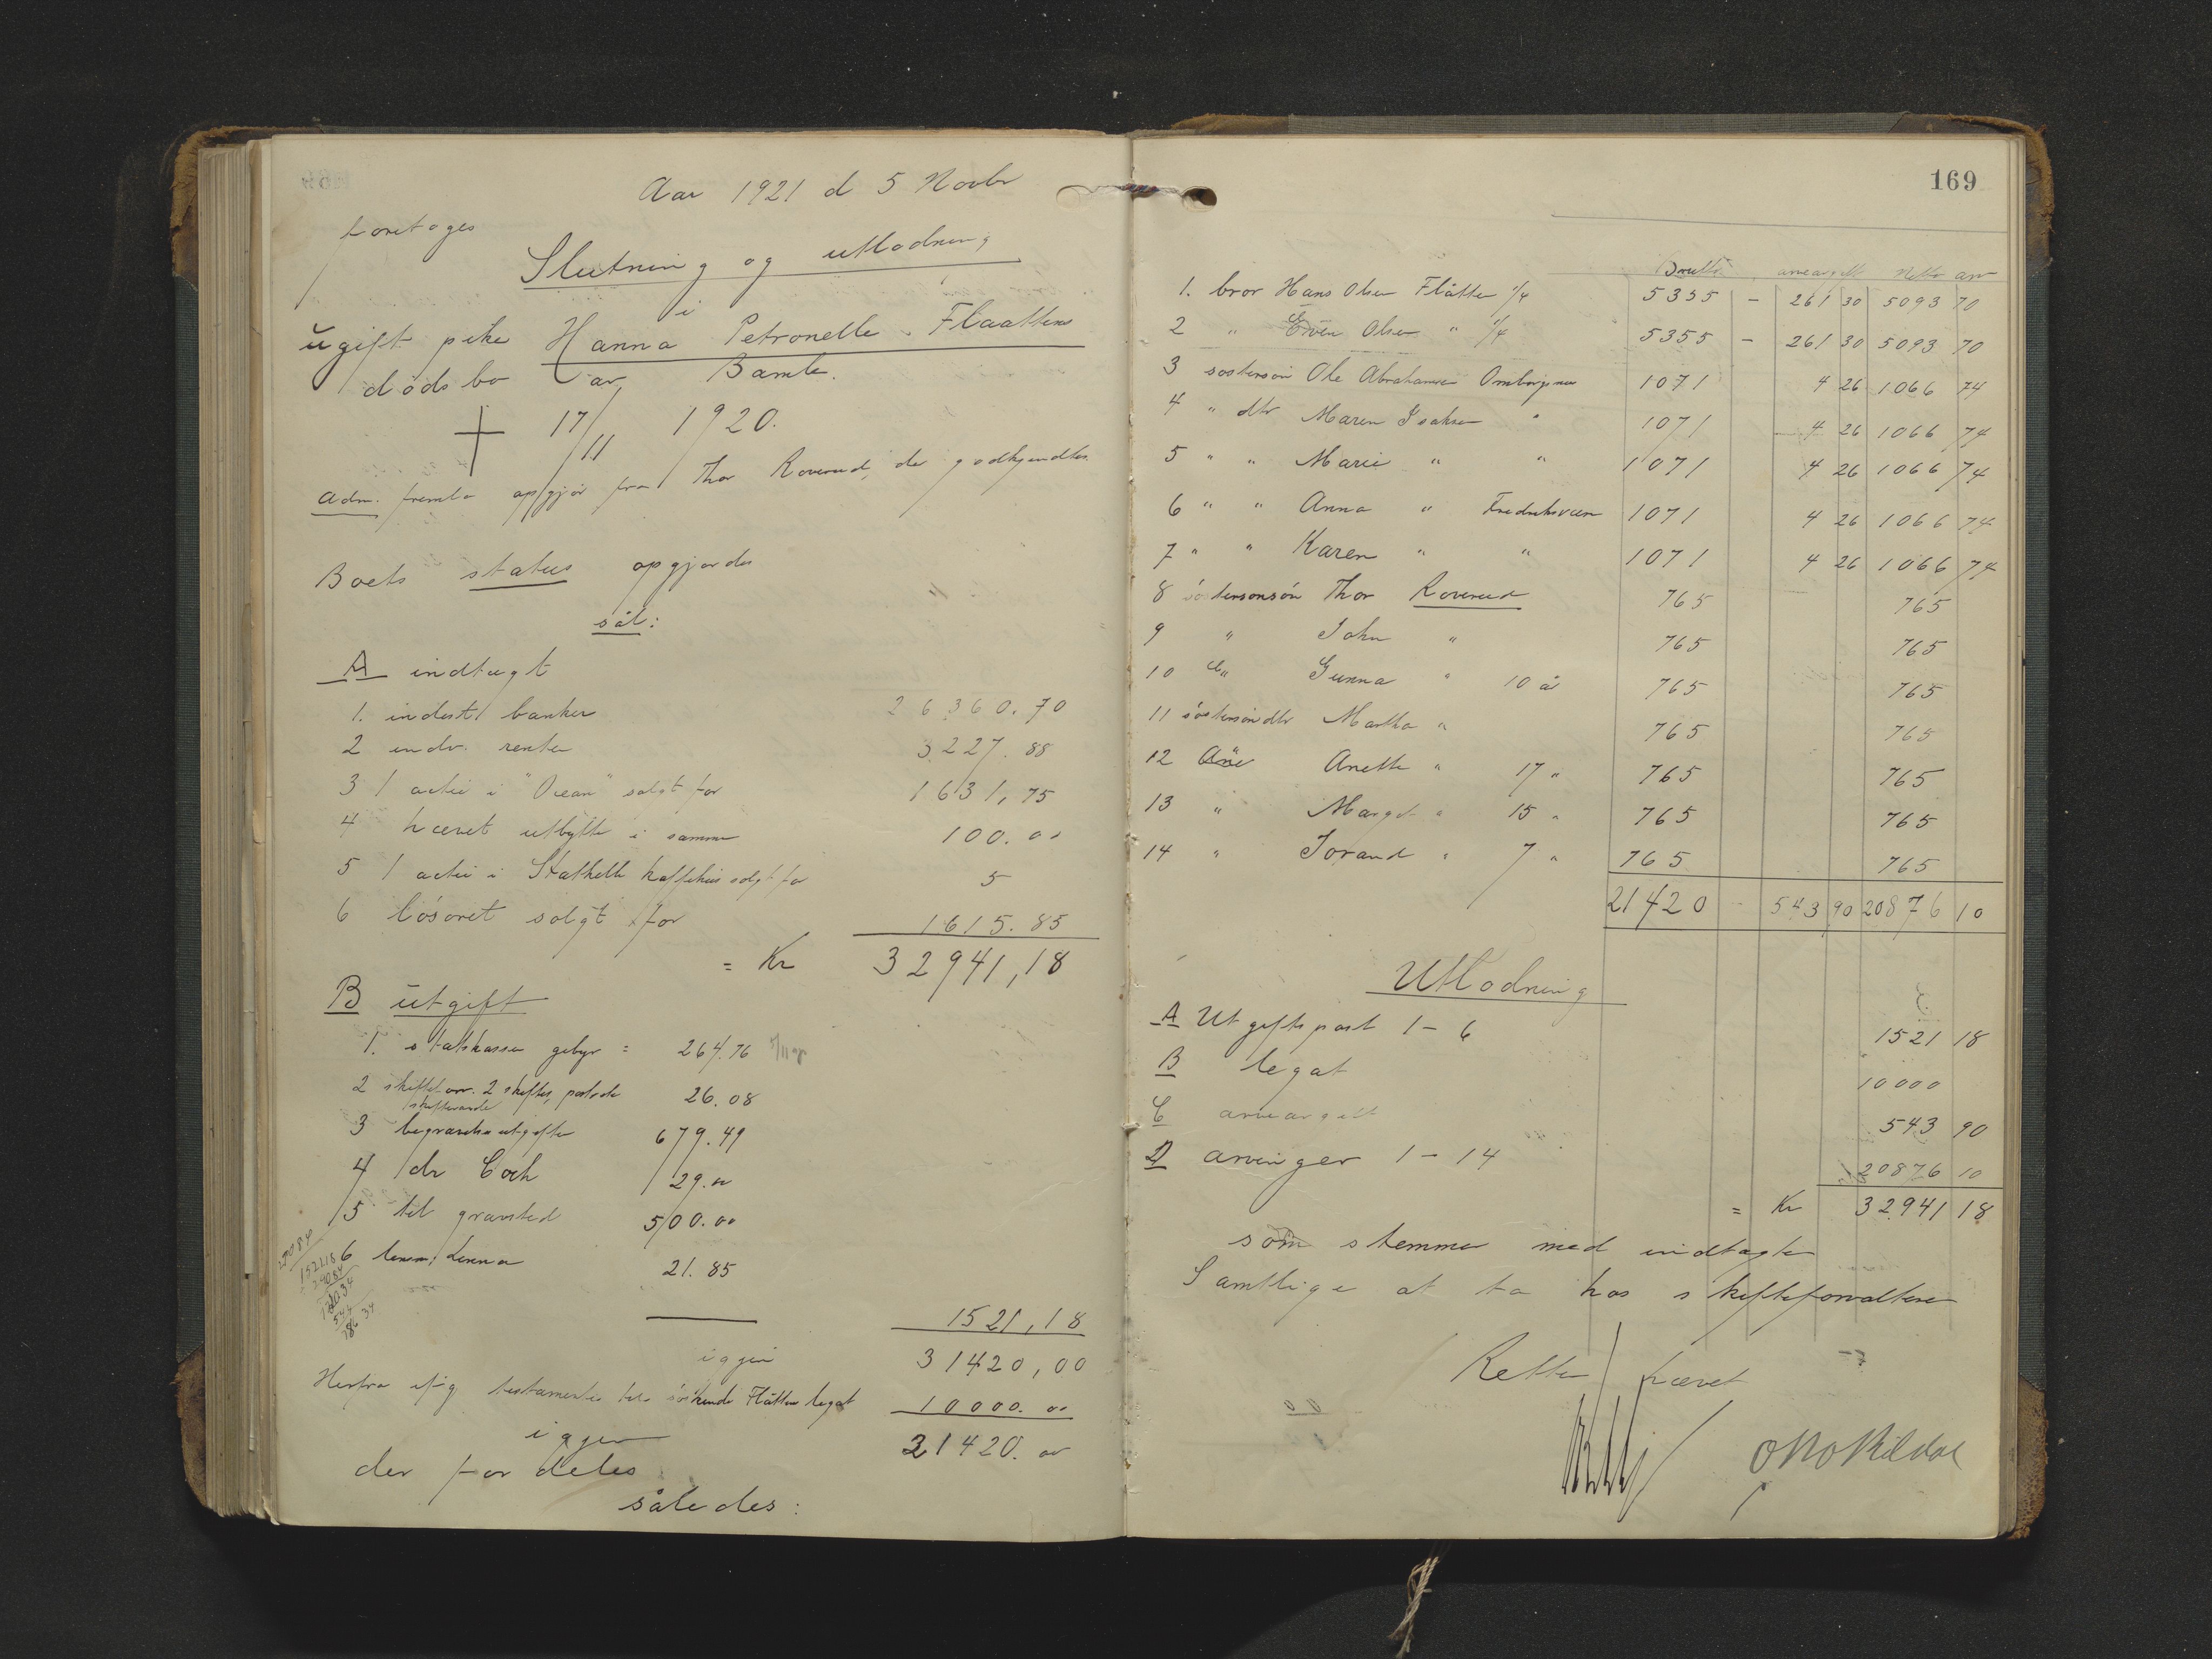 Aar 1921 d 5 Novbr
foretoges
Slutning og utlodning
i
ugift pike Hanna Petronelle Flaattens
dødsbo av Bamle.
† 17/11 1920.
Adm. fremla opgjør fra Thor Roverud, der godkjendtes.
Boets status opgjordes
sål:
A indtægt
1. indest. i banker 26360.70
2 indv. renter 3227.88
3 1 actie i "Ocean" solgt for 1631,75
4 hævet utbytte i samme 100.00
5 1 actie i Stathelle kaffehus solgt for 5
6 løsøret solgt for 1615.85
= Kr 32941,18
B utgift
1. statskassen gebyr = 264.76
2 26.08
3 begravelsesutgifter 679.49
4 dr Coch 29.00
5 til gravsted 500.00
6 21.85
1521,18
igjen 31420,00
Herfra ifølg testamente til søskende Flåttens legat 10000.00
igjen 21420.00
der fordeles
således:
169
Brutto arveavgift Netto arv
1. bror Hans Olsen Flåtten 1/4 5355 - 261 30 5093 70
2 " Even Olsen " 1/4 5355 - 261 30 5093 70
3 søstersøn Ole Abrahamsen 1071 4 26 1066 74
4 " dtr Maren Isaksen " 1071 4 26 1066 74
5 " " Marie " " 1071 4 26 1066 74
6 " " Anna " Fredriksværn 1071 4 26 1066 74
7 " " Karen " " 1071 4 26 1066 74
8 søstersønsøn Thor Roverud 765 765
9 " John " 765 765
10 " Gunna " 10 år 765 765
11 søstersøndtr Martha " 765 765
12 Anette " 17 " 765 765
13 " Margot " 15 " 765 765
14 " Jorand " 7 " 765 765
21420 - 543 90 20876 10
Utlodning
A Utgiftspost 1-6 1521 18
B legat 10000
C arveavgift 543 90
D arvinger 1-14 20876 10
= Kr 32941 18
som stemmer med indtægten
Samtlige at ta hos skifteforvalteren
Retten hævet